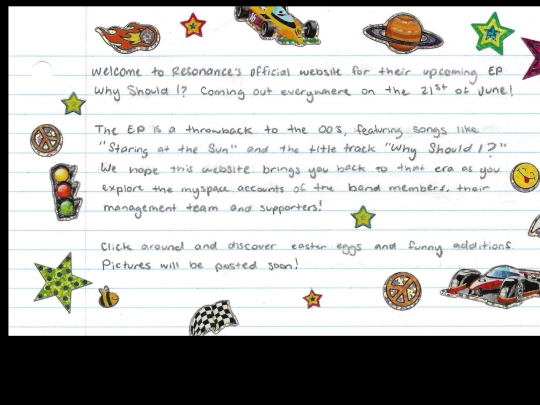 Welcome to Resonance's official website for their upcoming EP
Why Should I? Coming out everywhere on the 21st of June!
The EP is a throwback to the 00s, featuring songs like
"Staring at the Sun" and the title track "Why Should I?"
We hope this website brings you back to that era as you
explore the myspace accounts of the band members, their
management team and supporters!
Click around and discover easter eggs and funny additions.
Pictures will be posted soon!